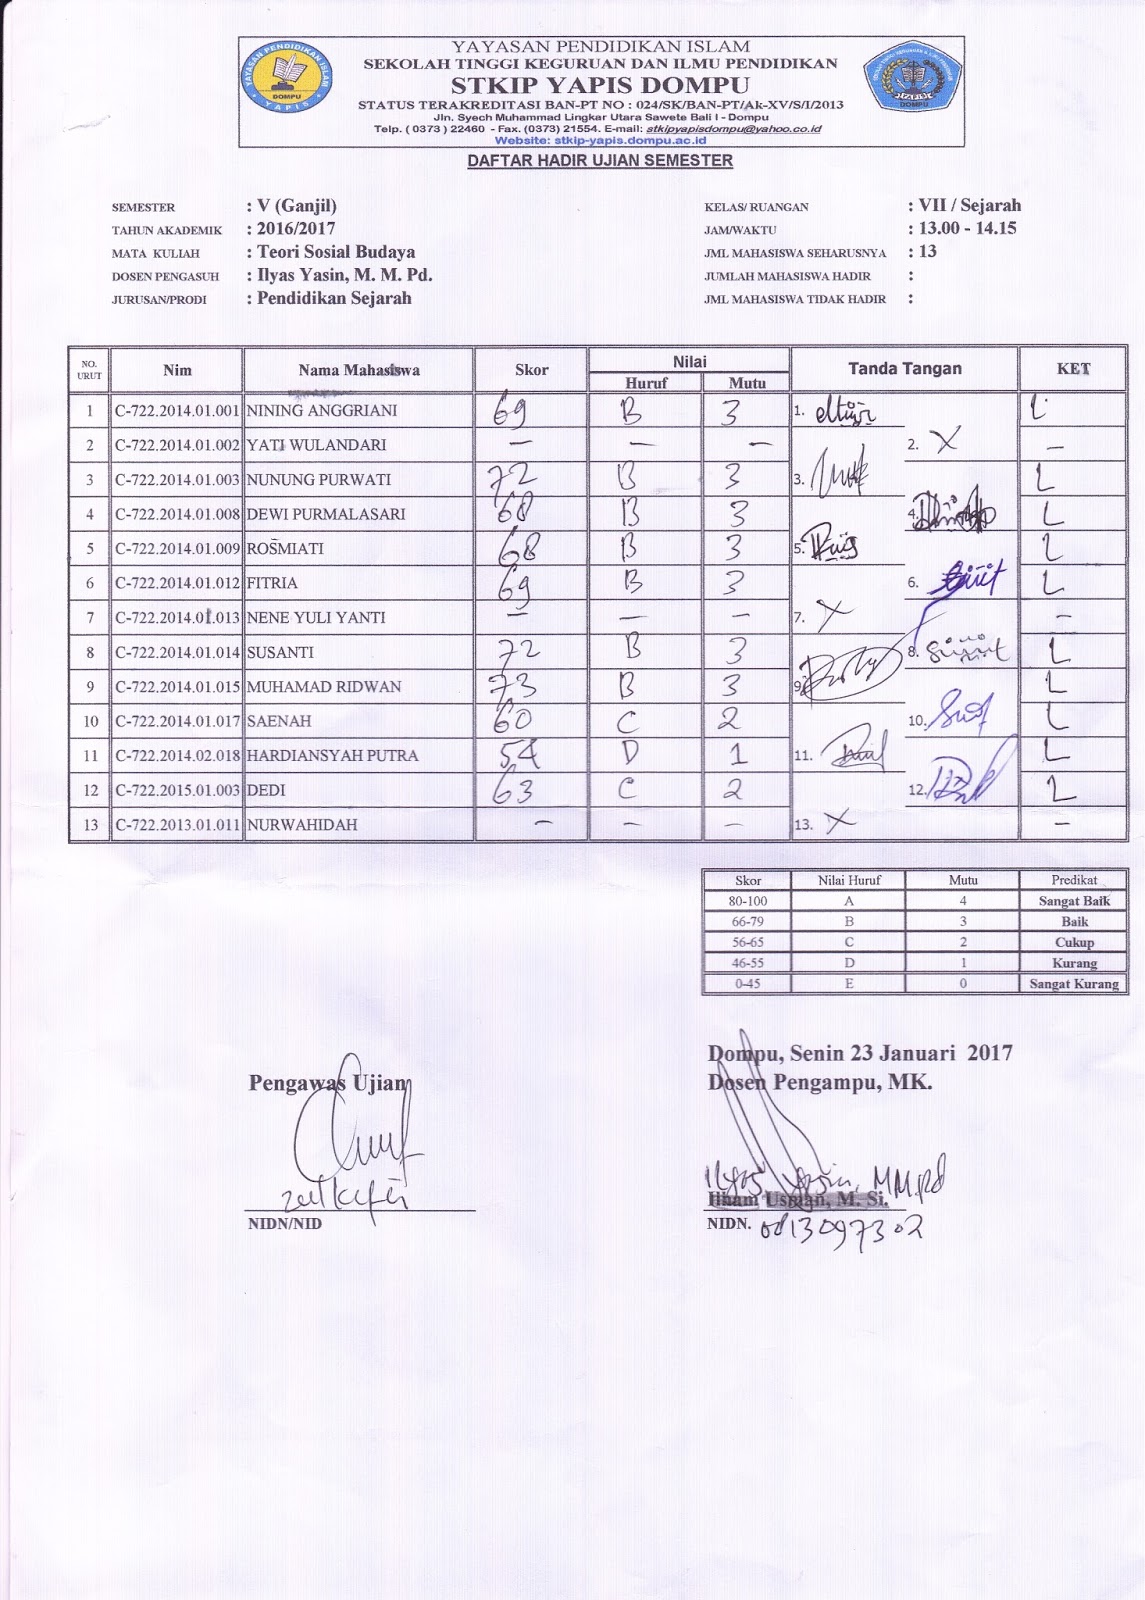 YAYASAN PENDIDIKAN ISLAM
SEKOLAH TINGGI KEGURUAN DAN ILMU PENDIDIKAN
STKIP YAPIS DOMPU
STATUS TERAKREDITASI BAN-PT NO : 024/SK/BAN-PT/Ak-XV/S/I/2013
Jln. Syech Muhammad Lingkar Utara Sawete Bali I - Dompu
Telp. ( 0373 ) 22460 - Fax. (0373) 21554. E-mail: stkipyapisdompu@yahoo.co.id
Website: stkip-yapis.dompu.ac.id
YAYASAN PENDIDIKAN ISLAM
DOMPU
YAPIS
DOMPU
DAFTAR HADIR UJIAN SEMESTER
SEMESTER : V (Ganjil) KELAS/ RUANGAN : VII / Sejarah
TAHUN AKADEMIK : 2016/2017 JAM/WAKTU : 13.00 - 14.15
MATA KULIAH : Teori Sosial Budaya JML MAHASISWA SEHARUSNYA : 13
DOSEN PENGASUH : Ilyas Yasin, M. M. Pd. JUMLAH MAHASISWA HADIR :
JURUSAN/PRODI : Pendidikan Sejarah JML MAHASISWA TIDAK HADIR :
NO. URUT Nim Nama Mahasiswa Skor Nilai Tanda Tangan KET
Huruf Mutu
1 C-722.2014.01.001 NINING ANGGRIANI 69 B 3 1. L
2 C-722.2014.01.002 YATI WULANDARI – – – 2. X –
3 C-722.2014.01.003 NUNUNG PURWATI 72 B 3 3. L
4 C-722.2014.01.008 DEWI PURMALASARI 68 B 3 4. L
5 C-722.2014.01.009 ROSMIATI 68 B 3 5. L
6 C-722.2014.01.012 FITRIA 69 B 3 6. L
7 C-722.2014.01.013 NENE YULI YANTI – – – 7. X –
8 C-722.2014.01.014 SUSANTI 72 B 3 8. L
9 C-722.2014.01.015 MUHAMAD RIDWAN 73 B 3 9. L
10 C-722.2014.01.017 SAENAH 60 C 2 10. L
11 C-722.2014.02.018 HARDIANSYAH PUTRA 54 D 1 11. L
12 C-722.2015.01.003 DEDI 63 C 2 12. L
13 C-722.2013.01.011 NURWAHIDAH – – – 13. X –
Skor Nilai Huruf Mutu Predikat
80-100 A 4 Sangat Baik
66-79 B 3 Baik
56-65 C 2 Cukup
46-55 D 1 Kurang
0-45 E 0 Sangat Kurang
Dompu, Senin 23 Januari 2017
Pengawas Ujian Dosen Pengampu, MK.
Ilyas Yasin, MM.Pd
Ilham Usman, M. Si.
NIDN/NID NIDN. 0813097302